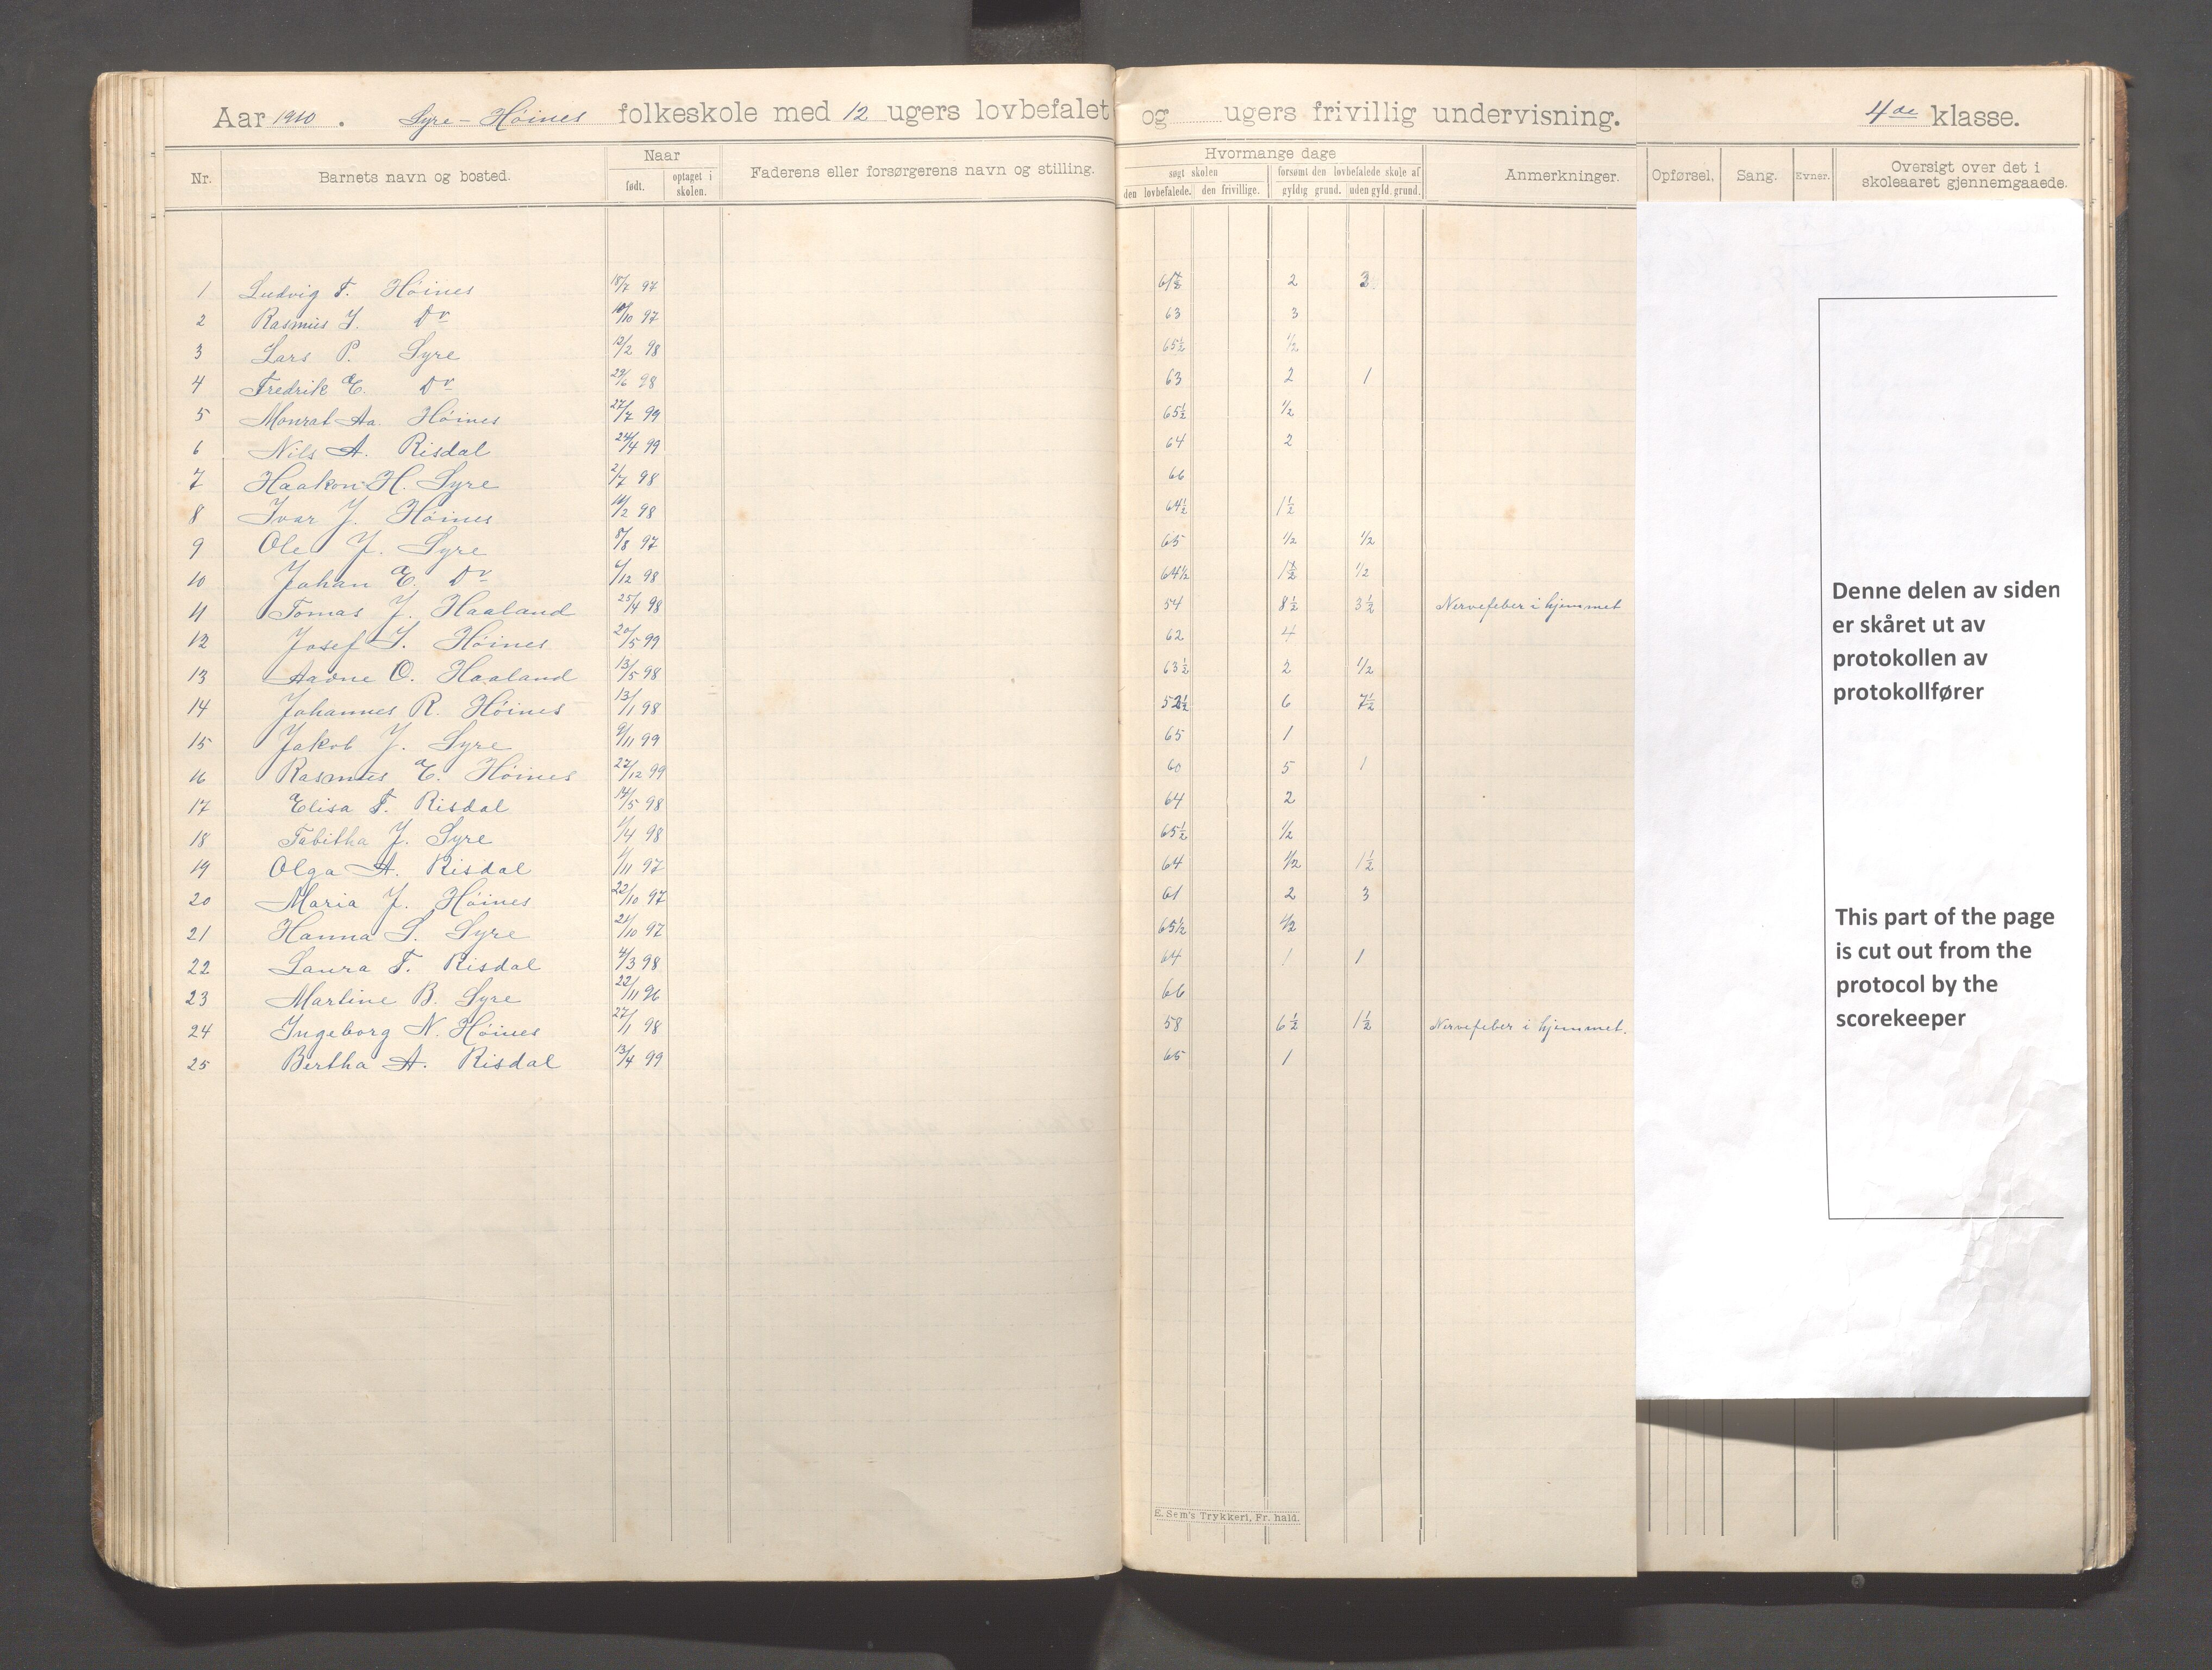 Aar 1910. Syre - Höines folkeskole med 12 ugers lovbefalet og ugers frivillig undervisning. 4de klasse.
Nr. Barnets navn og bosted. Naar født. optaget i skolen. Faderens eller forsørgerens navn og stilling. Hvormange dage søgt skolen den lovbefalede. den frivillige. forsømt den lovbefalede skole af gyldig grund. uden gyld. grund. Anmerkninger. Opførsel. Sang. Evner. Oversigt over det i skoleaaret gjennemgaaede.
1 Ludvig T. Höines 18/7 97 61½ 2 3
2 Rasmus J. Do 10/10 97 63 3
3 Lars P. Syre 12/2 98 65½ ½
4 Fredrik E. Do 29/6 98 63 2 1
5 Monrat Aa. Höines 27/7 99 65½ ½
6 Nils A. Risdal 24/4 99 64 2
7 Haakon H. Syre 2/7 98 66
8 Ivar J. Höines 14/2 98 64½ 1½
9 Ole J. Syre 8/8 97 65 ½ ½
10 Johan E. Do 6/12 98 64½ 1½ ½
11 Tomas J. Haaland 25/4 98 54 8½ 3½ Nervefeber i hjemmet
12 Josef S. Höines 20/5 99 62 4
13 Aadne O. Haaland 13/5 98 63½ 2 ½
14 Johannes R. Höines 13/1 98 52½ 6 7½
15 Jakob J. Syre 9/11 99 65 1
16 Rasmus E. Höines 27/12 99 60 5 1
17 Elisa T. Risdal 14/5 98 64 2
18 Tabitha J. Syre 1/4 98 65½ ½
19 Olga A. Risdal 1/11 97 64 ½ 1½
20 Maria J. Höines 22/10 97 61 2 3
21 Hanna S. Syre 21/10 97 65½ ½
22 Laura T. Risdal 4/3 98 64 1 1
23 Martine B. Syre 22/11 96 66
24 Ingeborg N. Höines 27/1 98 58 6½ 1½ Nervefeber i hjemmet.
25 Bertha A. Risdal 13/4 99 65 1
E. Sem's Trykkeri, Fr. hald.
Denne delen av siden
er skåret ut av
protokollen av
protokollfører
This part of the page
is cut out from the
protocol by the
scorekeeper